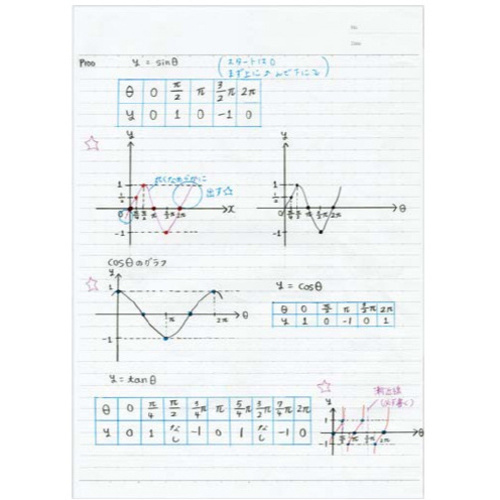 No.
Date
P100 y = sinθ (スタートは0
まず上に進んで下に)
θ 0 π/2 π 3/2π 2π
y 0 1 0 -1 0
y
1
1/2
0 π/6 π/2 π 3/2π 2π x
-1
出す☆
y
1
1/2
π/6 π/2 π 3/2π 2π θ
-1
cosθのグラフ
y
1
π 2π θ
-1
y = cosθ
θ 0 π/2 π 3/2π 2π
y 1 0 -1 0 1
y = tanθ
θ 0 π/4 π/2 3/4π π 5/4π 3/2π 7/4π 2π
y 0 1 なし -1 0 1 なし -1 0
漸近線
(必ず書く)
y
1
π/2 π 3/2π 2π θ
-1